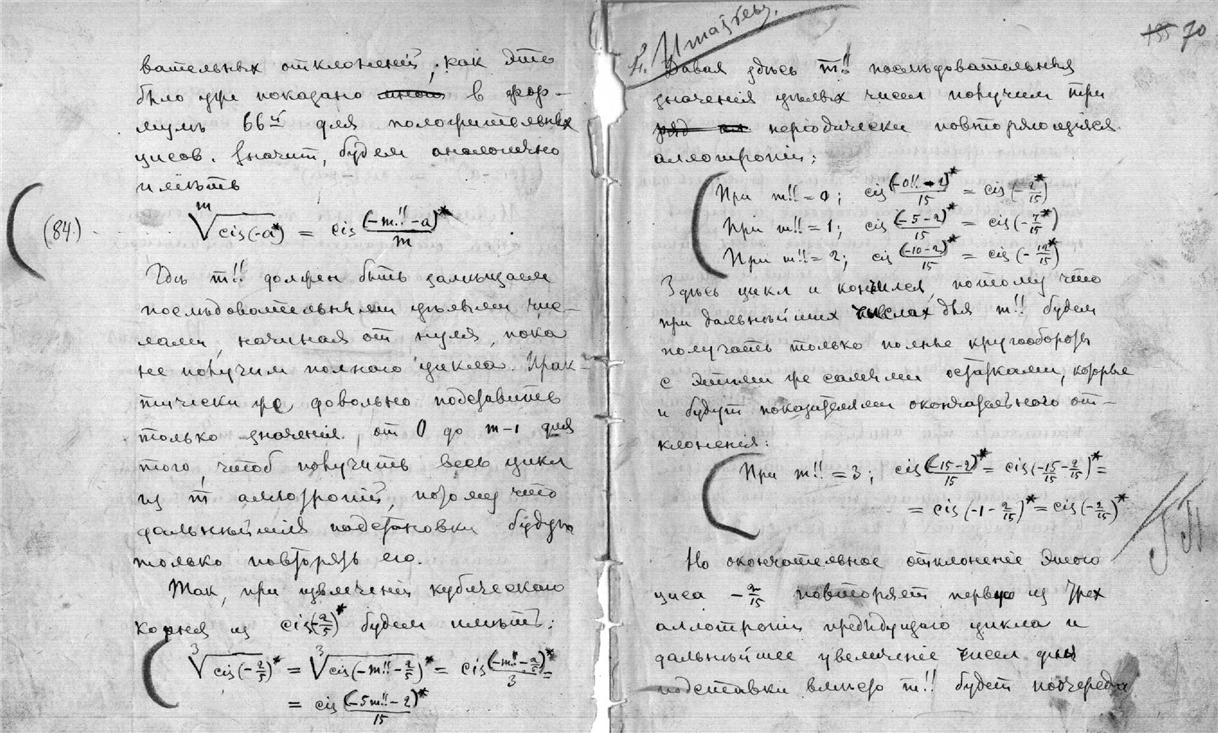 вательныхъ отклоненій, какъ это
было уже показано въ фор-
мулѣ 66й для положительныхъ
цисов. Значит, будем аналогично
имѣть
(84.) m√cis(-a*) = cis (-m!!-a)*/m
Здѣсь m!! должен быть замѣщаем
послѣдовательными цѣлыми чис-
лами, начиная от нуля, пока
не получим полнаго цикла. Прак-
тически же, довольно подставить
только значенія, от 0 до m-1 для
того чтоб получить весь цикл
из m аллотропій, потому что
дальнѣйшія подстановки будут
только повторять его.
Так, при извлеченіи кубическаго
корня из cis(-2/5)* будем имѣть:
3√cis(-2/5)* = 3√cis(-m!!-2/5)* = cis (-m!!-2/5)*/3 =
= cis (-5m!!-2)*/15
70
Давая здѣсь m!! послѣдовательныя
значенія цѣлых чисел получим три
періодически повторяющіяся
аллотропіи:
При m!! = 0; cis (-0!!-2)*/15 = cis(-2/15)*
При m!! = 1; cis (-5-2)*/15 = cis(-7/15)*
При m!! = 2; cis (-10-2)*/15 = cis(-12/15)*
Здѣсь цикл и кончился, потому что
при дальнѣйших числах для m!! будем
получать только полные кругообороты
с этими же самыми остатками, которые
и будут показателями окончательнаго от-
клоненія:
При m!! = 3; cis (-15-2)*/15 = cis(-15/15-2/15)* =
= cis(-1-2/15)* = cis(-2/15)*
Но окончательное отклоненіе этого
циса -2/15 повторяет первую из трех
аллотропій предыдущаго цикла и
дальнѣйшее увеличеніе чисел для
подставки вмѣсто m!! будет поочередн